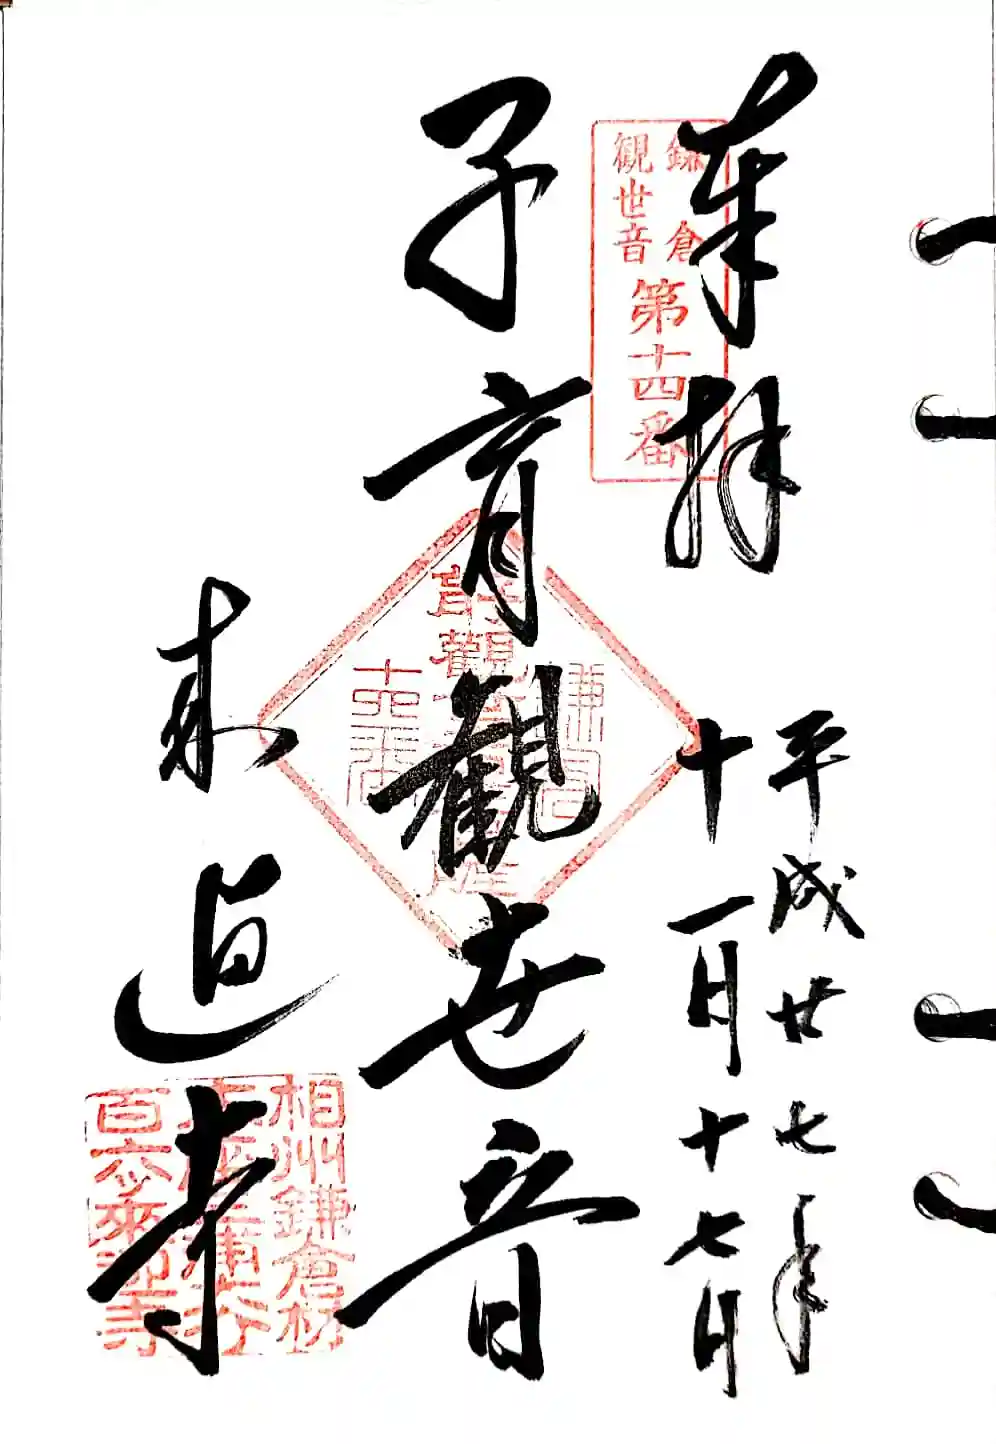 奉拝
平成廿七年
十一月十七日
鎌倉
観世音
第十四番
子育観世音
来迎寺
相州鎌倉材